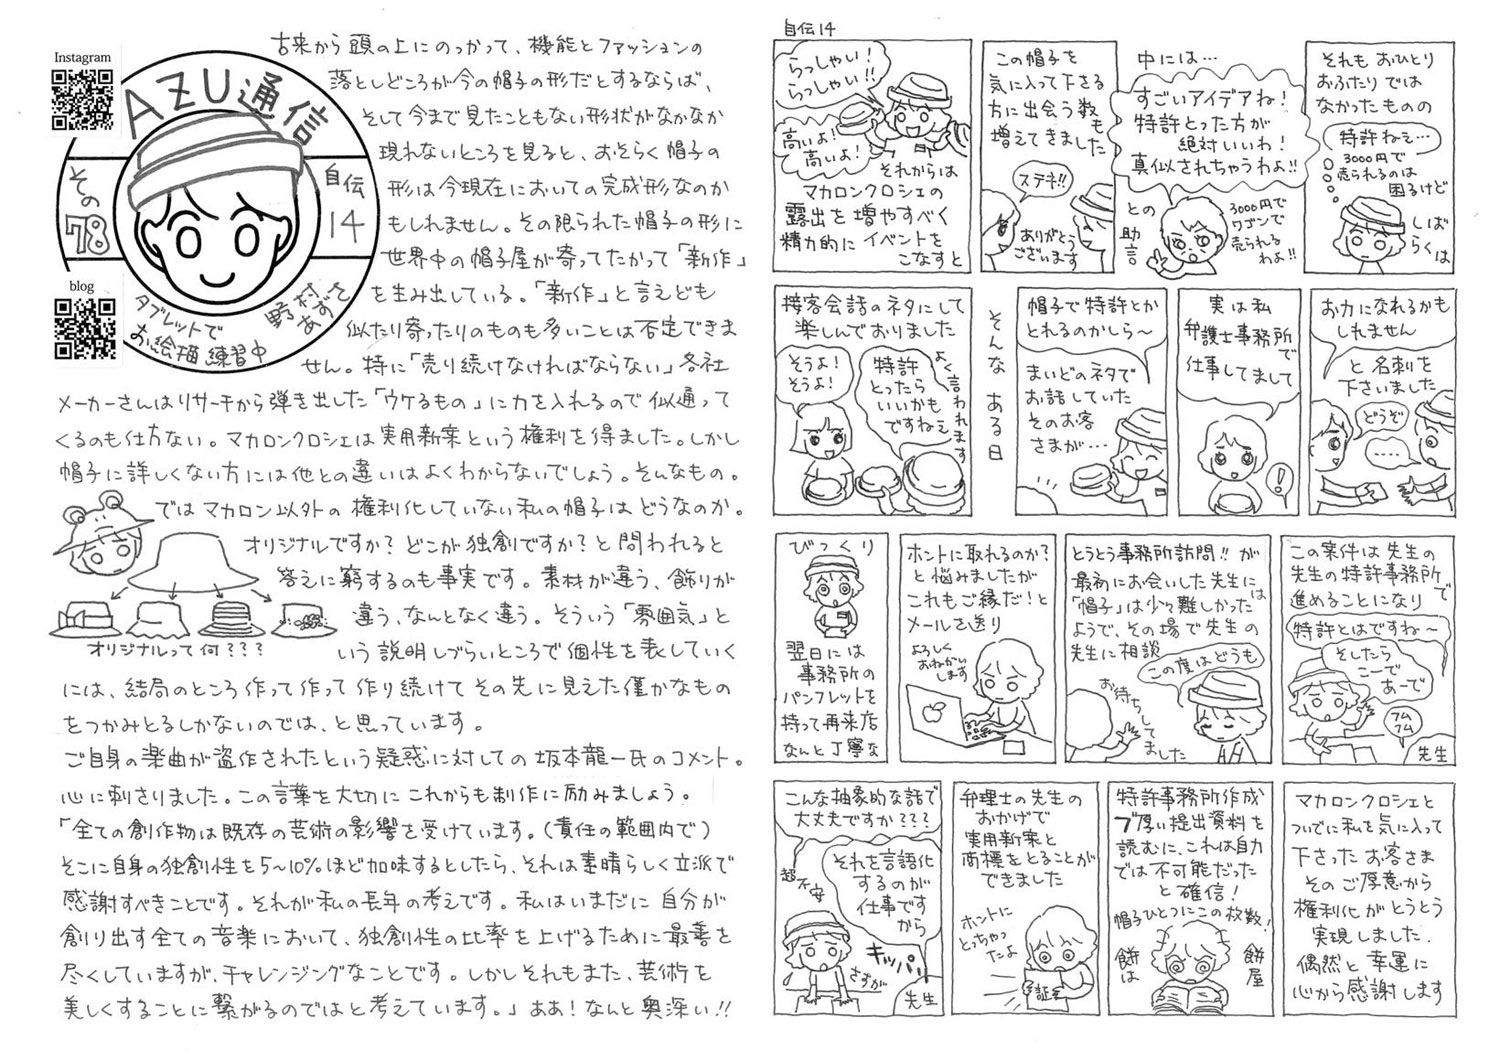 Instagram
AZU通信
その
78
自伝
14
blog
タブレットで
お絵描練習中
野村あずさ
古来から頭の上にのっかって、機能とファッションの
落としどころが今の帽子の形だとするならば、
そして今まで見たこともない形状がなかなか
現れないところを見ると、おそらく帽子の
形は今現在においての完成形なのか
もしれません。その限られた帽子の形に
世界中の帽子屋が寄ってたかって「新作」
を生み出している。「新作」と言えども
似たり寄ったりのものも多いことは否定できま
せん。特に「売り続けなければならない」各社
メーカーさんはリサーチから弾き出した「ウケるもの」に力を入れるので似通って
くるのも仕方ない。マカロンクロシェは実用新案という権利を得ました。しかし
帽子に詳しくない方には他との違いはよくわからないでしょう。そんなもの。
ではマカロン以外の権利化していない私の帽子はどうなのか。
オリジナルですか？どこが独創ですか？と問われると
答えに窮するのも事実です。素材が違う、飾りが
違う、なんとなく違う。そういう「雰囲気」と
オリジナルって何？？？
いう説明しづらいところで個性を表していく
には、結局のところ作って作って作り続けてその先に見えた僅かなもの
をつかみとるしかないのでは、と思っています。
ご自身の楽曲が盗作されたという疑惑に対しての坂本龍一氏のコメント。
心に刺さりました。この言葉を大切にこれからも制作に励みましょう。
「全ての創作物は既存の芸術の影響を受けています。（責任の範囲内で）
そこに自身の独創性を5～10％ほど加味するとしたら、それは素晴らしく立派で
感謝すべきことです。それが私の長年の考えです。私はいまだに自分が
創り出す全ての音楽において、独創性の比率を上げるために最善を
尽くしていますが、チャレンジングなことです。しかしそれもまた、芸術を
美しくすることに繋がるのではと考えています。」ああ！なんと奥深い!!
自伝14
らっしゃい!
らっしゃい!!
高いよ!
高いよ!
それからは
マカロンクロシェの
露出を増やすべく
精力的にイベントを
こなすと
この帽子を
気に入って下さる
方に出会う数も
増えてきました
ステキ!!
ありがとう
ございます
中には…
すごいアイデアね!
特許とった方が
絶対いいわ!
真似されちゃうわよ!!
との
助言
3000円で
ワゴンで
売られる
わよ!!
それもおひとり
おふたりでは
なかったものの
特許ねぇ…
3000円で
売られるのは
困るけど
しば
らくは
接客会話のネタにして
楽しんでおりました
そうよ!
そうよ!
特許
とったら
いいかも
ですねぇ
よく言われます
そんなある日
帽子で特許とか
とれるのかしら～
まいどのネタで
お話していた
そのお客
さまが…
実は私
弁護士事務所で
仕事してまして
!
お力になれるかも
しれません
と名刺を
下さいました
どうぞ
….
びっくり
翌日には
事務所の
パンフレットを
持って再来店
なんと丁寧な
ホントに取れるのか？
と悩みましたが
これもご縁だ!と
メールを送り
よろしく
おねがい
します
とうとう事務所訪問!!が
最初にお会いした先生には
「帽子」は少々難しかった
ようで、その場で先生の
先生に相談
この度はどうも
お待ち
して
ました
この案件は先生の
先生の特許事務所で
進めることになり
特許とはですね～
そしたら
こーで
あーで
フム
フム
先生
こんな抽象的な話で
大丈夫ですか？？？
超不安
それを言語化
するのが
仕事です
から
キッパリ
さすが
先生
弁理士の先生の
おかげで
実用新案と
商標をとることが
できました
ホントに
とっちゃっ
たよ
証
特許事務所作成
ブ厚い提出資料を
読むに、これは自力
では不可能だった
と確信!
帽子ひとつにこの枚数!
餅は
餅屋
マカロンクロシェと
ついでに私を気に入って
下さったお客さま
そのご厚意から
権利化がとうとう
実現しました.
偶然と幸運に
心から感謝します